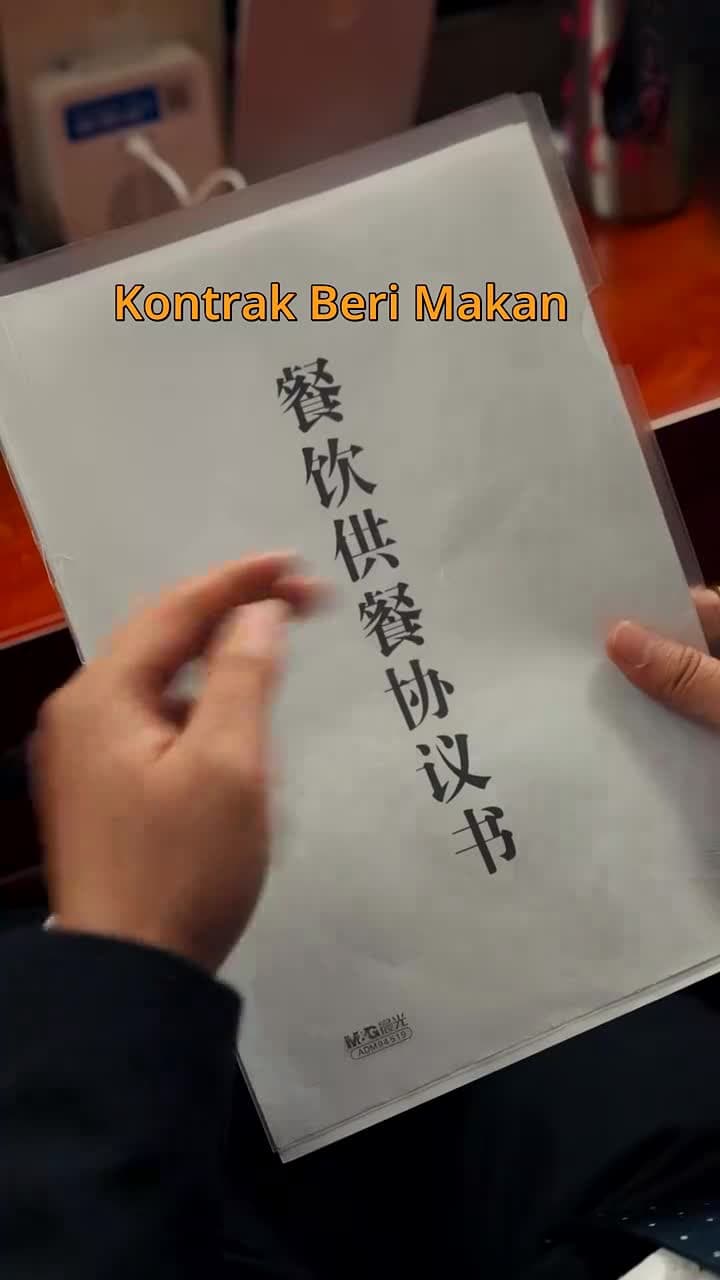 Kontrak Beri Makan
餐饮供餐协议书
M&G晨光
ADM94519